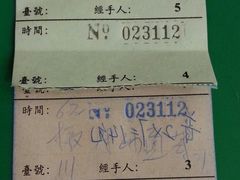 臺號: 經手人: 5
時間: No 023112
臺號: 經手人: 4
時間: No 023112
臺號: 111 經手人: 3